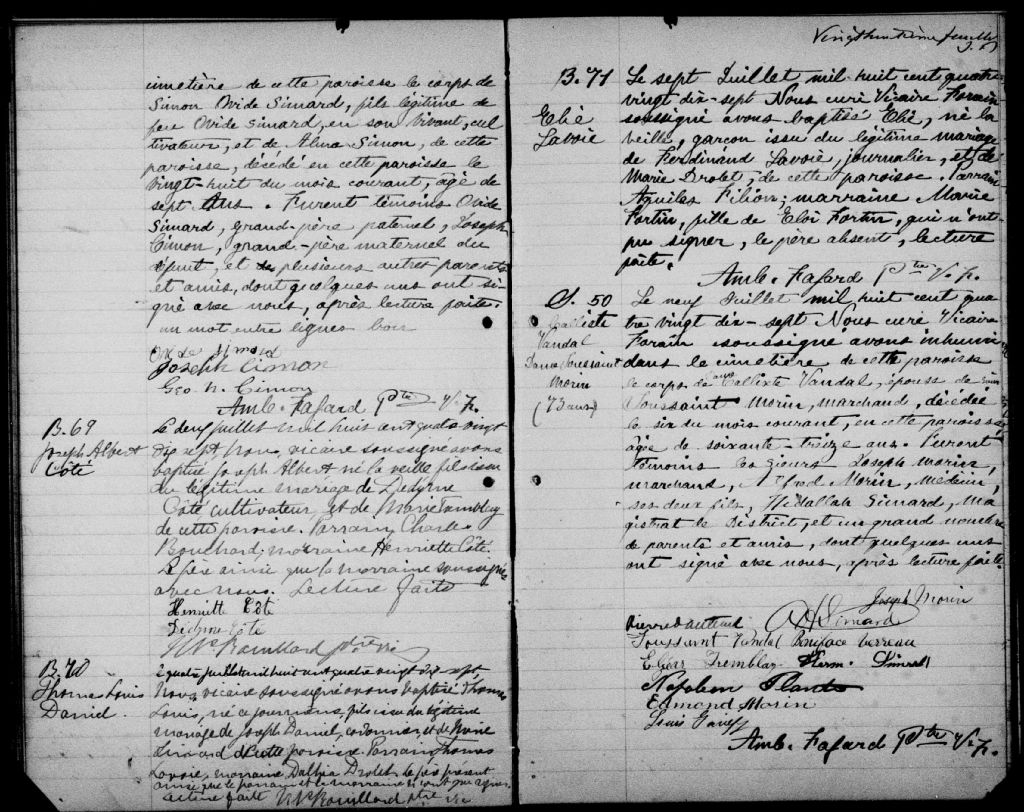 cimetière de cette paroisse le corps de
Simon Ovide Simard, fils légitime de
feu Ovide Simard, en son vivant, cul
tivateur, et de Alma Simon, de cette
paroisse, décédé en cette paroisse le
vingt-huit du mois courant, âgé de
sept Ans. Furent témoins Ovide
Simard, grand-père paternel, Joseph
Cimon, grand-père maternel du
défunt, et plusieurs autres parents
et amis, dont quelques uns ont si
gné avec nous, après lecture faite.
un mot entre lignes bon
Ovide Simard
Joseph Cimon
Geo. N. Cimon
Amb. Fafard Ptre V. F.
B. 69
Joseph Albert
Côté
Le deux juillet mil huit cent quatre vingt
dix sept, Nous, vicaire soussigné avons
baptisé Joseph Albert né la veille fils issu
du légitime mariage de Didyme
Côté cultivateur, et de Marie Tremblay
de cette paroisse. Parrain, Charles
Bouchard, marraine Henriette Côté.
Le père ainsi que la marraine soussignés
avec nous. Lecture faite
Henriette Côté
Didyme Côté
Rouillard ptre vic
B. 70
Thomas Louis
Daniel.
Le quatre juillet mil huit cent quatre vingt dix sept,
Nous, vicaire soussigné avons baptisé Thomas
Louis, né ce jour, fils issu du légitime
mariage de Joseph Daniel, cordonnier, et de Marie
Simard de cette paroisse Parrain, Thomas
Lavoie, marraine Dolbia Drolet. Le père présent
ainsi que le parrain et la marraine n'ont pu signer.
Lecture faite Rouillard ptre vic
Vingthuitième feuillet
B. 71
Elié
Lavoie
Le sept Juillet mil huit cent quatre
vingt dix-sept Nous curé Vicaire Forain
soussigné avons baptisé Elié, né la
veille, garçon issu du légitime mariage
de Ferdinand Lavoie, journalier, et de
Marie Drolet, de cette paroisse. Parrain
Aquilas Filion; marraine Marie
Fortin, fille de Eloi Fortin, qui n'ont
pu signer, le père absent, lecture
faite.
Amb. Fafard Ptre V. F.
S. 50
Calliste
Vandal
Dame Toussaint
Morin
(73 ans)
Le neuf Juillet mil huit cent qua
tre vingt dix-sept Nous curé Vicaire
Forain soussigné avons inhumé
dans le cimetière de cette paroisse
le corps de Callixte Vandal, épouse de
Toussaint Morin, marchand, décédée
le six du mois courant, en cette paroisse
âgée de soixante-treize ans. Furent
témoins les sieurs Joseph Morin,
marchand, Alfred Morin, médecin,
ses deux fils, Héldallah Simard, Ma
gistrat de District, et un grand nombre
de parents et amis, dont quelques uns
ont signé avec nous, après lecture faite.
Joseph Morin
Simard
Toussaint Vandal Boniface
Edgar Tremblay
Napoleon Plante
Edmond Morin
Louis
Amb. Fafard Ptre V. F.